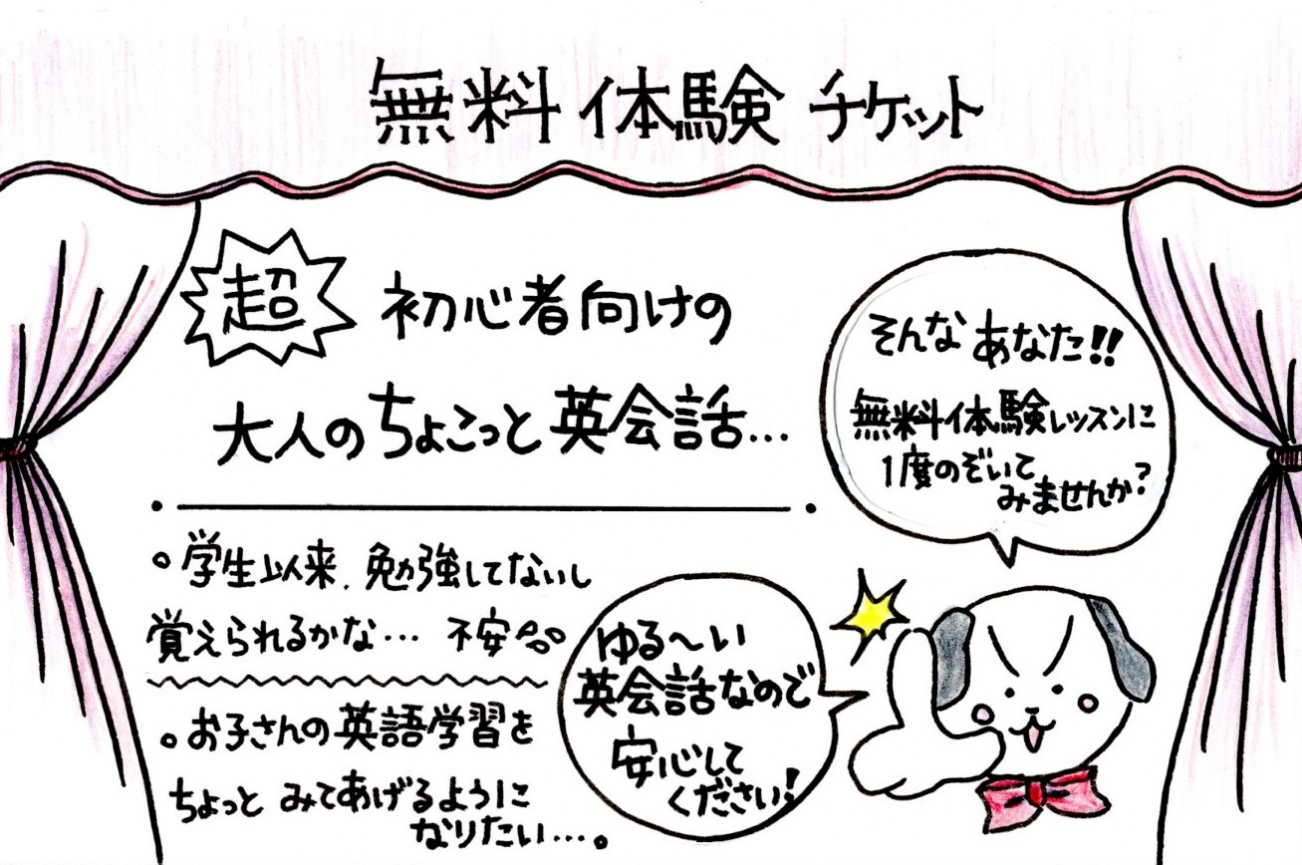 無料体験チケット
超 初心者向けの
大人のちょこっと英会話...
。学生以来、勉強してないし
覚えられるかな... 不安
。お子さんの英語学習を
ちょっとみてあげるように
なりたい...。
そんなあなた!!
無料体験レッスンに
1度のぞいて
みませんか?
ゆる〜い
英会話なので
安心して
ください!